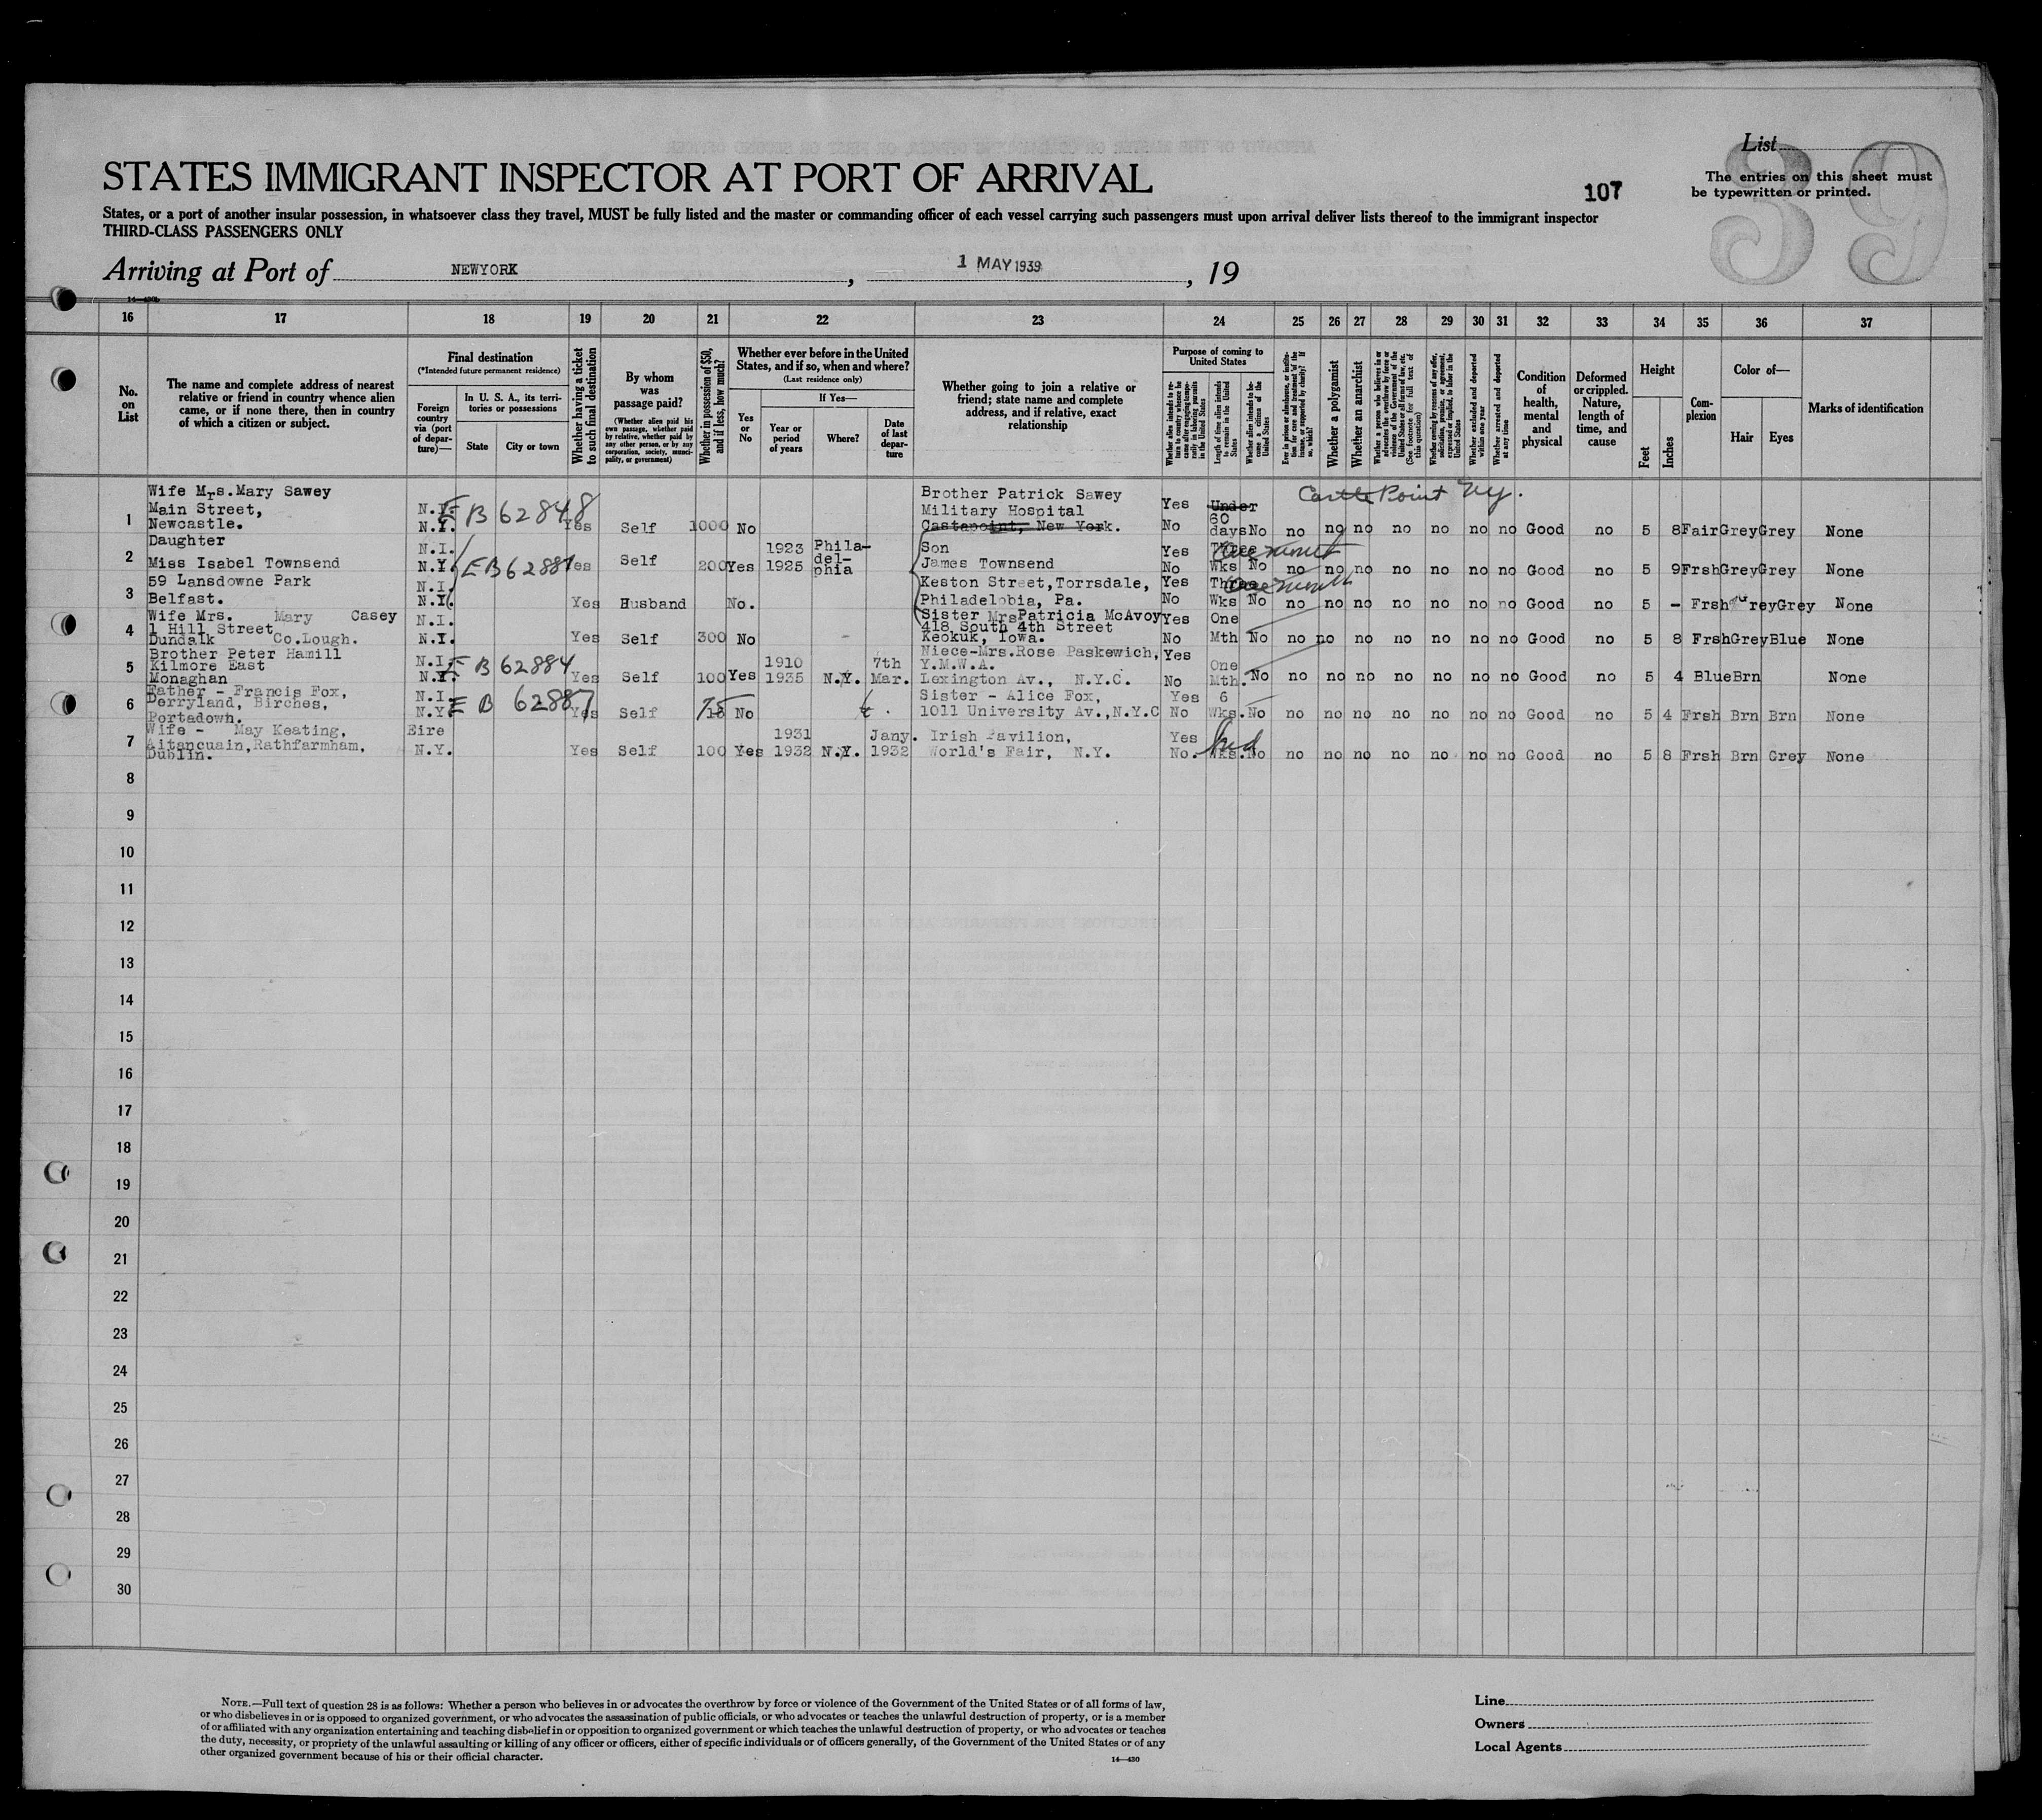 List
39
STATES IMMIGRANT INSPECTOR AT PORT OF ARRIVAL
107
The entries on this sheet must
be typewritten or printed.
States, or a port of another insular possession, in whatsoever class they travel, MUST be fully listed and the master or commanding officer of each vessel carrying such passengers must upon arrival deliver lists thereof to the immigrant inspector
THIRD-CLASS PASSENGERS ONLY
Arriving at Port of NEWYORK, 1 MAY 1939, 19
14—430b
16 17 18 19 20 21 22 23 24 25 26 27 28 29 30 31 32 33 34 35 36 37
No. on List
The name and complete address of nearest relative or friend in country whence alien came, or if none there, then in country of which a citizen or subject.
Final destination
(*Intended future permanent residence)
Foreign country via (port of departure)—
In U. S. A., its territories or possessions
State City or town
Whether having a ticket to such final destination
By whom was passage paid?
(Whether alien paid his own passage, whether paid by relative, whether paid by any other person, or by any corporation, society, municipality, or government)
Whether in possession of $50, and if less, how much?
Whether ever before in the United States, and if so, when and where?
(Last residence only)
Yes or No
If Yes—
Year or period of years
Where?
Date of last departure
Whether going to join a relative or friend; state name and complete address, and if relative, exact relationship
Purpose of coming to United States
Whether alien intends to return to country whence he came after engaging temporarily in laboring pursuits in the United States
Length of time alien intends to remain in the United States
Whether alien intends to become a citizen of the United States
Ever in prison or almshouse, or institution for care and treatment of the insane, or supported by charity? If so, which?
Whether a polygamist
Whether an anarchist
Whether a person who believes in or advocates the overthrow by force or violence of the Government of the United States or all forms of law, etc. (See footnote for full text of this question)
Whether coming by reasons of any offer, solicitation, promise, or agreement, expressed or implied, to labor in the United States
Whether excluded and deported within one year
Whether arrested and deported at any time
Condition of health, mental and physical
Deformed or crippled. Nature, length of time, and cause
Height
Feet Inches
Complexion
Color of—
Hair Eyes
Marks of identification
Castle Point N.Y.
1 Wife Mrs.Mary Sawey
Main Street,
Newcastle.
N.I. N.Y. EB 62848 Yes Self 1000 No
Brother Patrick Sawey
Military Hospital
Castapoint, New York.
Yes No Under 60 days No no no no no no no no Good no 5 8 Fair Grey Grey None
2 Daughter
Miss Isabel Townsend
N.I. N.Y. EB 62881 Yes Self 200 Yes 1923 1925 Phila-
del-
phia
Son
James Townsend
Yes No Wks No One month no no no no no no no Good no 5 9 Frsh Grey Grey None
3 59 Lansdowne Park
Belfast.
N.I. N.Y. Yes Husband No.
Keston Street,Torrsdale,
Philadelobia, Pa.
Yes No Three Wks No One month no no no no no no no Good no 5 - Frsh Grey Grey None
4 Wife Mrs. Mary Casey
1 Hill Street
Dundalk Co.Lough.
N.I. N.Y. Yes Self 300 No -
Sister Mrs Patricia McAvoy
418 South 4th Street
Keokuk, Iowa.
Yes No One Mth No no no no no no no no Good no 5 8 Frsh Grey Blue None
5 Brother Peter Hamill
Kilmore East
Monaghan
N.I. N.Y. EB 62884 Yes Self 100 Yes 1910 1935 N.Y. 7th Mar.
Niece-Mrs.Rose Paskewich,
Y.M.W.A.
Lexington Av., N.Y.C.
Yes No One Mth. No no no no no no no no Good no 5 4 Blue Brn None
6 Father - Francis Fox,
Derryland, Birches,
Portadown.
N.I. N.Y. EB 62887 Yes Self 75 No
Sister - Alice Fox,
1011 University Av.,N.Y.C
Yes No 6 Wks. No no no no no no no no Good no 5 4 Frsh Brn Brn None
7 Wife - May Keating,
Aitancuain,Rathfarmham,
Dublin.
Eire N.Y. Yes Self 100 Yes 1931 1932 N.Y. Jany. 1932
Irish Pavilion,
World's Fair, N.Y.
Yes No. Wks. No no no no no no no no Good no 5 8 Frsh Brn Grey None
8
9
10
11
12
13
14
15
16
17
18
19
20
21
22
23
24
25
26
27
28
29
30
NOTE.—Full text of question 28 is as follows: Whether a person who believes in or advocates the overthrow by force or violence of the Government of the United States or of all forms of law,
or who disbelieves in or is opposed to organized government, or who advocates the assassination of public officials, or who advocates or teaches the unlawful destruction of property, or is a member
of or affiliated with any organization entertaining and teaching disbelief in or opposition to organized government or which teaches the unlawful destruction of property, or who advocates or teaches
the duty, necessity, or propriety of the unlawful assaulting or killing of any officer or officers, either of specific individuals or of officers generally, of the Government of the United States or of any
other organized government because of his or their official character.
14—430
Line
Owners
Local Agents